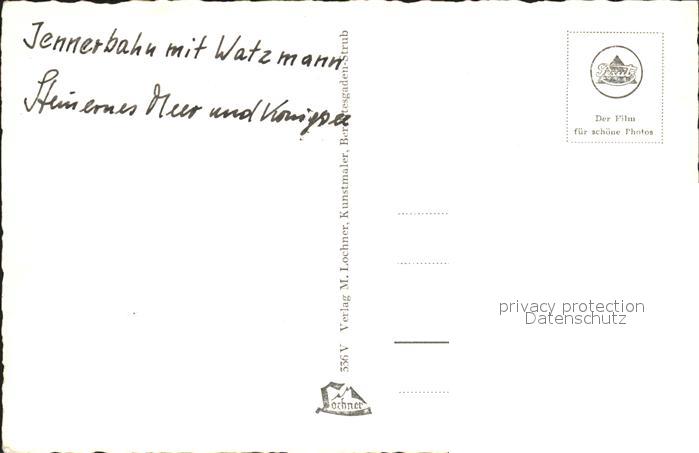 Jennerbahn mit Watzmann
Steinernes Meer und Königsee
336 V Verlag M. Lochner, Kunstmaler, Berchtesgaden-Strub
Lochner
Der Film
für schöne Photos
privacy protection
Datenschutz